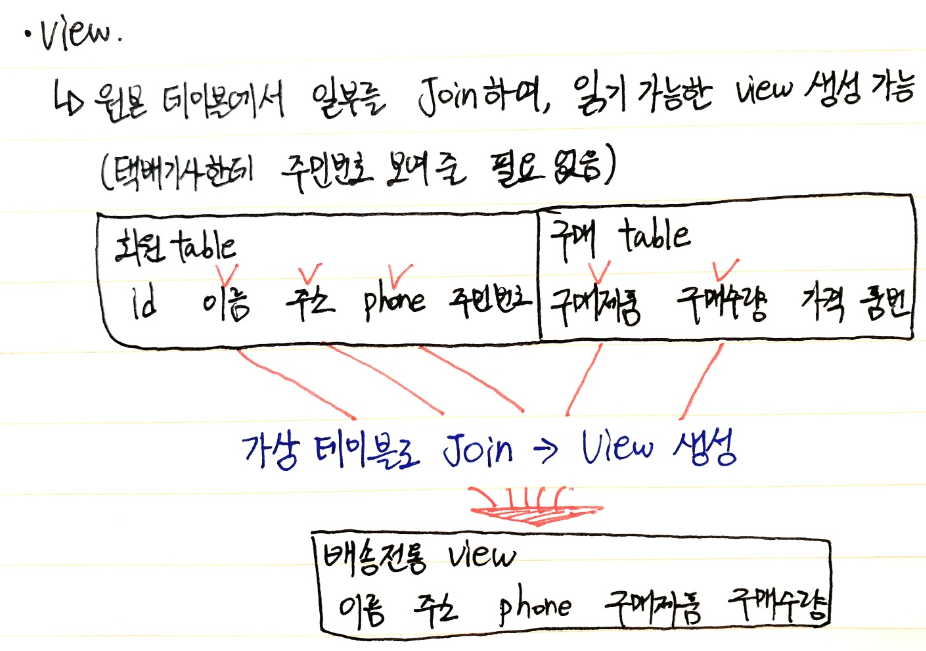 · View.
↳ 원본 테이블에서 일부를 Join하여, 읽기 가능한 view 생성 가능
(택배기사한테 주민번호 보여 줄 필요 없음)
회원 table
id 이름 주소 phone 주민번호
구매 table
구매제품 구매수량 가격 품번
가상 테이블로 Join → View 생성
배송전용 view
이름 주소 phone 구매제품 구매수량